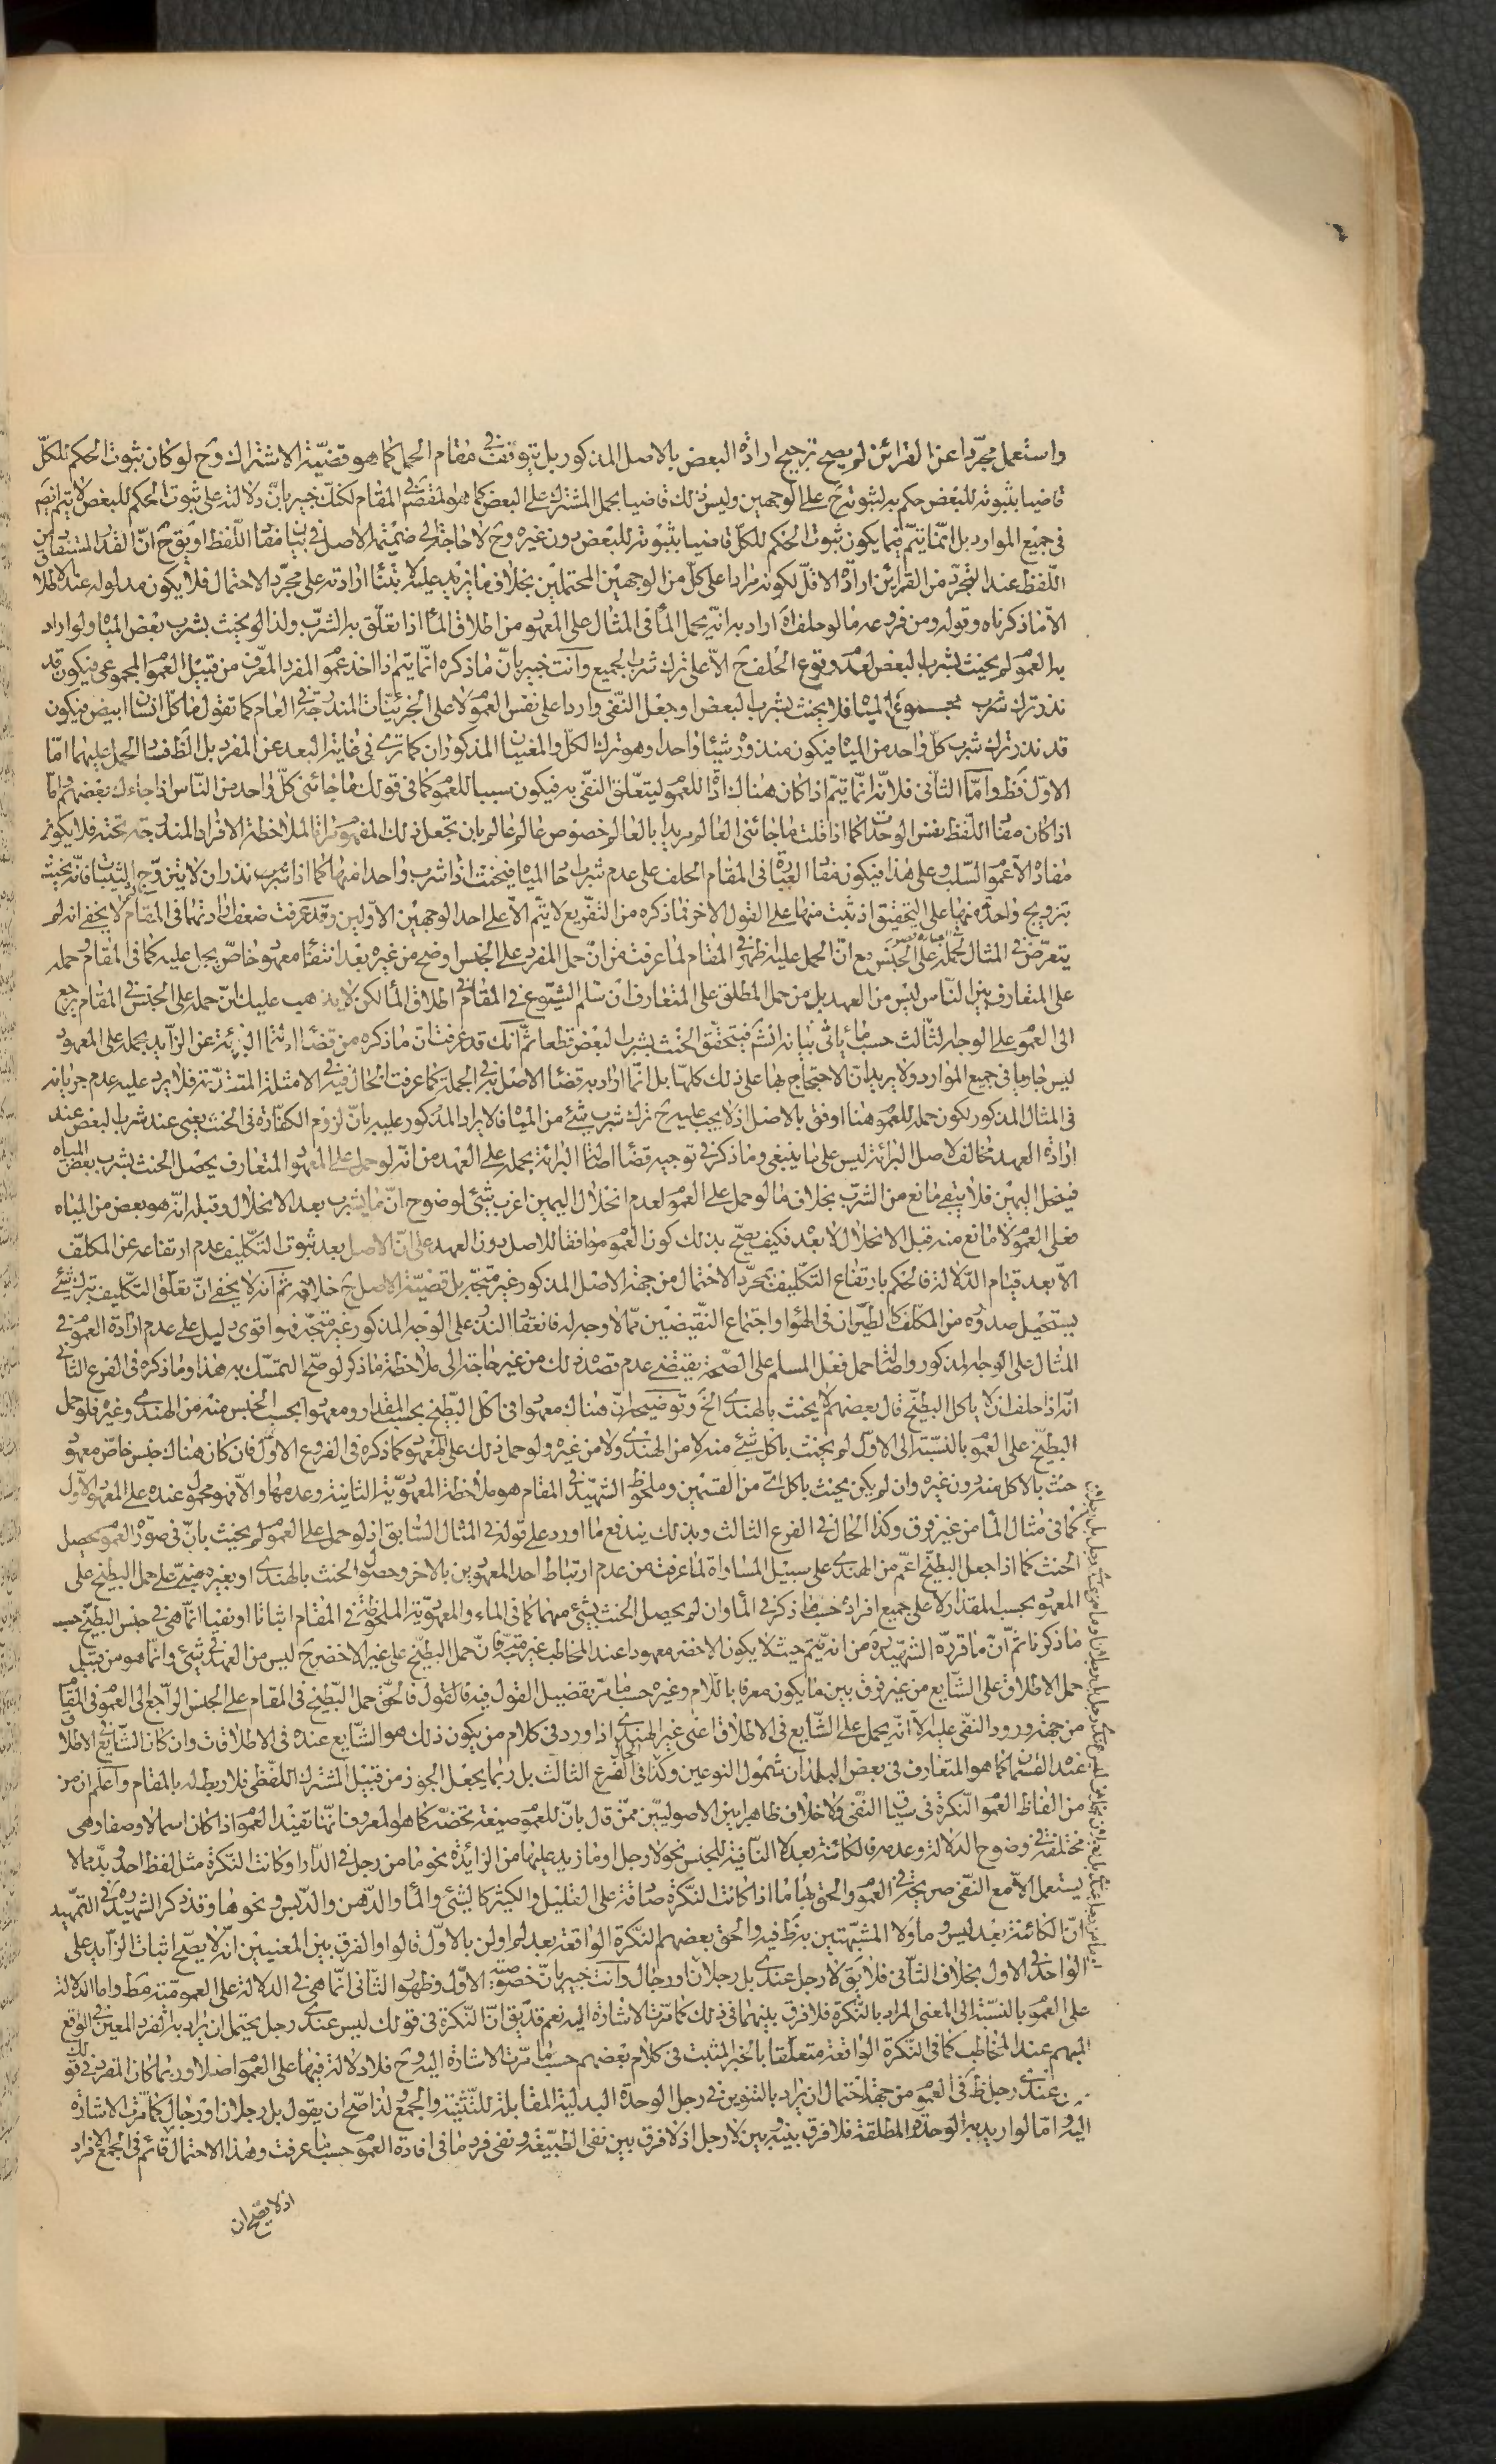 واستعمل مجرّدا عن القرائن لم يصح ترجيح ارادة البعض بالاصل المذكور بل يتوقف في مقام الحمل كما هو قضيّة الاشتراك وح لو كان ثبوت الحكم للكلّ
قاضيا بثبوته للبعض حكم به لثبوته ح على الوجهين وليس ذلك قاضيا بحمل المشترك على البعض كما هو المقصود في المقام لكنّك خبير بانّ دلالته على ثبوت الحكم للبعض لا يتم
في جميع الموارد بل انّما يتمّ فيما يكون ثبوت الحكم للكلّ قاضيا بثبوته للبعض دون غيره وح لا حاجة الى ضميمة الاصل في بيان مفاد اللّفظ او يق ح انّ القدر المستفاد من
اللّفظ عند التجرّد من القرائن ارادة الاقلّ لكونه مرادا على كلّ من الوجهين المحتملين بخلاف ما يزيد عليه لابتناء ارادته على مجرّد الاحتمال فلا يكون مدلوله عند الاطلا
الّا ما ذكرناه وقوله ومن فروعه ما لو حلف اه اراد به انّه يحمل الماء في المثال على المعهود من اطلاق الماء اذا تعلّق به الشرب ولذا لو يحنث بشرب بعض المياه ولو اراد
به العموم لم يحنث بشرب البعض لعدم وقوع الحلف ح الّا على ترك شرب الجميع وانت خبير بانّ ما ذكره انّما يتم اذا اخذ عموم المفرد المعرّف من قبيل العموم المجموعى فيكون قد
نذر ترك شرب مجموع المياه فلا يحنث بشرب البعض او جعل النّفى واردا على نفس العموم لا على الجزئيّات المندرجة في العام كما تقول ما كلّ انسان ابيض فيكون
قد نذر ترك شرب كلّ واحد من المياه فيكون منذوره شيئا واحدا وهو ترك الكلّ والمعنيان المذكوران كما ترى في غاية البعد عن المفرد بل الظّ فساد الحمل عليهما امّا
الاوّل فظ وامّا الثّانى فلانّه انّما يتمّ اذا كان هناك اداة للعموم ليتعلّق النّفى به فيكون سببا للعموم كما في قولك ما جائنى كلّ واحد من النّاس اذا جاءك بعضهم وامّا
اذا كان مفاد اللّفظ نفس الوحدات كما اذا قلت ما جائنى العالم مريدا بالعالم خصوص عالم عالم بان تجعل ذلك المفهوم مراة لملاحظة الافراد المندرجة تحته فلا يكون
مفاده الّا عموم السّلب وعلى هذا فيكون مفاد العبارة في المقام الحلف على عدم شرب احاد المياه فيحنث اذا شرب واحدا منها كما اذا نذر ان لا يتزوّج الثيّبات فانّه يحنث
بتزويج واحدة منها على التحقيق اذ يثبت منها على القول الاخر فما ذكره من التفريع لا يتم الّا على احد الوجهين الاوّلين وقد عرفت ضعف ارادتهما في المقام ثم لا يخفى انه لم
يتعرّض في المثال لحمله على الجنس مع انّ الحمل عليه اظهر في المقام لما عرفت من انّ حمل المفرد على الجنس اوضح من غيره بعد انتفاء معهود خاصّ يحمل عليه كما في المقام وحمله
على المتعارف بين النّاس ليس من العهد بل من حمل المطلق على المتعارف ان سلم الشيوع في المقام في اطلاق الماء لكن لا يذهب عليك انّ حمله على الجنس في المقام يرجع
الى العموم على الوجه الثّالث حسب ما يأتى بيانه انش فيتحقّق الحنث بشرب البعض قطعا ثم انّك قد عرفت ان ما ذكره من قضاء اصالة البرائة عن الزّايد بحمله على المعهود
ليس جاريا في جميع الموارد ولا يريد ان الاحتجاج بها على ذلك كلّها بل انّما اراد به قضاء الاصل به في الجملة كما عرفت الحال فيه في الامثلة المتقدّمة فلا يرد عليه عدم جريانه
في المثال المذكور لكون حمله للعموم هنا اوفق بالاصل اذ لا يجب عليه ح ترك شرب شئ من المياه فالايراد المذكور عليه بانّ لزوم الكفّارة في الحنث يعنى عند شرب البعض عند
ارادة العهد مخالف لاصل البرائة ليس على ما ينبغى وما ذكر في توجيه قضاء اصالة البرائة بحمله على العهد من انّه لو حمل على المعهود المتعارف يحصل الحنث بشرب بعض المياه
فينحل اليمين فلا يبقى مانع من الشرب بخلاف ما لو حمل على العموم لعدم انحلال اليمين اغرب شئ لوضوح انّ ما يشرب بعد الانحلال وقبله انّه هو بعض من المياه
فعلى العموم لا مانع منه قبل الانحلال لا بعد فكيف يصحّ بذلك كون العموم موافقا للاصل دون العهد على انّ الاصل بعد ثبوت التكليف عدم ارتفاعه عن المكلّف
الّا بعد قيام الدّلالة فالحكم بارتفاع التّكليف بمجرّد الاحتمال من جهة الاصل المذكور غير متّجه بل قضيّة الاصل ح خلافه ثم انّه لا يخفى انّ تعلّق التكليف بترك شئ
يستحيل صدوره من المكلّف كالطّيران في الهواء واجتماع النّقيضين ممّا لا وجه له فانعقاد النذر على الوجه المذكور غير متّجه فهو اقوى دليل على عدم ارادة العموم في
المثال على الوجه المذكور واصالة حمل فعل المسلم على الصّحة يقتضى عدم قصد ذلك من غير حاجة الى ملاحظة ما ذكر لو صحّ التمسّك به هذا وما ذكره في الفرع الثّانى
انّه اذا حلف ان لا ياكل البطيخ قال بعضهم لا يحنث بالهندى الخ وتوضيحه انّ هناك معهودا في اكل البطّيخ بحسب المقدار ومعهودا بحسب الجنس منه من الهندى وغيره فلو حمل
البطيّخ على العموم بالنّسبة الى الاوّل لم يحنث باكل شئ منه لا من الهندى ولا من غيره ولو حمل ذلك على المعهود كما ذكره في الفروع الاوّل فان كان هناك جنس خاصّ معهود
حنث بالاكل منه دون غيره وان لم يكن يحنث باكل اىّ من القسمين وملحوظ الشّهيد في المقام هو ملاحظة المعهوديّة الثّانية وعدمها والّا فهو محمول عنده على المعهود الاوّل
كما في مثال الماء من غير فرق وكذا الحال في الفرع الثالث وبذلك يندفع ما اورد على قوله في المثال السّابق اذ لو حمل على العموم لم يحنث بانّ في صورة العموم يحصل
الحنث كما اذا جعل البطيّخ اعمّ من الهندى على سبيل المساواة لما عرفت من عدم ارتباط احد المعهودين بالاخر وحصول الحنث بالهندى او بغيره مبنىّ على حمل البطيّخ على
المعهود بحسب المقدار لا على جميع افراده حسبما ذكر في الماء وان لم يحصل الحنث بشئ منهما كما في الماء والمعهوديّة الملحوظة في المقام اثباتا او نفيا انّما هى في جنس البطيّخ حسب
ما ذكرنا ثم انّ ما قرّره الشّهيد ره من انّه يتم حيث لا يكون الاخضر معهودا عند المخاطب غير متّجه فانّ حمل البطيّخ على غير الاخضر ح ليس من العهد في شئ وانّما هو من قبيل
حمل الاطلاق على الشّايع من غير فرق بين ما يكون معرفا باللّام وغيره حسب ما مرّ تفصيل القول فيه فالقول فالحقّ حمل البطّيخ في المقام على الجنس الراجع الى العموم في المقام
من جهة ورود النّفى عليه الّا انّه يحمل على الشّايع في الاطلاق اعنى غير الهندى اذا ورد في كلام من يكون ذلك هو الشّايع عنده في الاطلاقات وان كان الشّايع في الاطلاق
عند القسمان كما هو المتعارف في بعض البلدان شمول النوعين وكذا في الفرع الثالث بل ربما يجعل الجوز من قبيل المشترك اللّفظى فلا ربط له بالمقام واعلم ان من
من الفاظ العموم النّكرة في سياق النّفى ولا خلاف ظاهرا بين الاصوليّين ممّن قال بانّ للعموم صيغة تخصّه كما هو المعروف انّها تفيد العموم اذا كان اسما لا وصفا وهى
مختلفة في وضوح الدّلالة وعدمه فالكائنة بعد لا النّافية للجنس نحو لا رجل او ما زيد عليها من الزائدة نحو ما من رجل في الدّار او كانت النّكرة مثل لفظ احد وبدّ ممّا لا
يستعمل الّا مع النّفى صريحة في العموم والحق بها ما اذا كانت النّكرة صادقة على القليل والكثير كالشّئ والماء والدّهن والدّبس ونحوها وقد ذكر الشّهيد ره في التّمهيد
انّ الكائنة بعد ليس وما ولا المشبهتين به ظ فيه والحق بعضهم النّكرة الواقعة بعد لم او لن بالاوّل قالوا والفرق بين المعنيين انّه لا يصحّ اثبات الزّايد على
الواحد في الاول بخلاف الثّانى فلا يق لا رجل عندى بل رجلان او رجال وانت خبير بانّ خصوصيّة الاوّل وظهور الثّانى انّما هى في الدلالة على العموم منه مط واما الدلالة
على العموم بالنّسبة الى المعنى المراد بالنّكرة فلا فرق بينهما في ذلك كما مرّت الاشارة اليه نعم قد يق انّ النّكرة في قولك ليس عندى رجل يحتمل ان يراد بها الفرد المعين في الواقع
المبهم عند المخاطب كما في النّكرة الواقعة متعلّقا بالخبر المثبت في كلام بعضهم حسب ما مرّت الاشارة اليه وح فلا دلالة فيها على العموم اصلا وربما كان المفرد في قولك
عندى رجل ظ في العموم من جهة احتمال ان يراد بالتنوين في رجل الوحدة البدلية المقابلة للتّثنية والجمع ولذا صحّ ان يقول بل رجلان او رجال كما مرّت الاشارة
اليه وامّا لو اريد به الوحدة المطلقة فلا فرق بينه وبين لا رجل اذ لا فرق بين نفى الطّبيعة ونفى فرد ما في افادة العموم حسبما عرفت وهذا الاحتمال قائم في الجمع افراد
اذ لا يصحّ ان